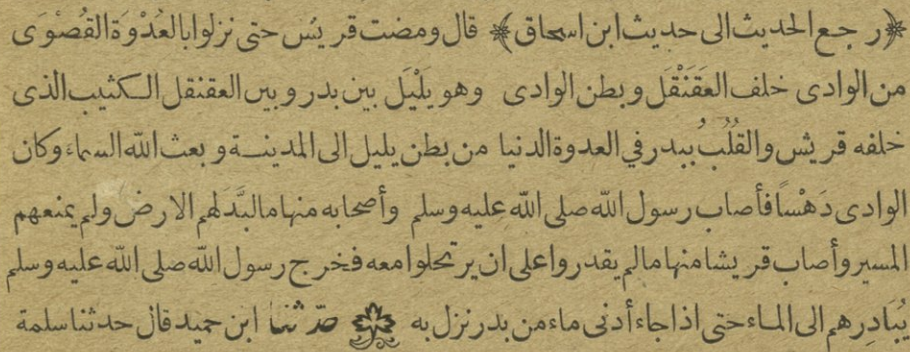 ﴿رجع الحديث الى حديث ابن اسحاق﴾ قال ومضت قريش حتى نزلوا بالعُدْوَة القُصْوَى
من الوادى خلف العَقَنْقَل وبطن الوادى وهو يَلْيَل بين بدر وبين العقنقل الكثيب الذى
خلفه قريش والقُلُبُ ببدر في العدوة الدنيا من بطن يليل الى المدينة وبعث الله السماء وكان
الوادى دَهْسًا فأصاب رسول الله صلى الله عليه وسلم وأصحابه منها ما لَبَّدَ لهم الارض ولم يمنعهم
المسير وأصاب قريشا منها مالم يقدروا على ان يرتحلوا معه فخرج رسول الله صلى الله عليه وسلم
يُبَادِرهم الى الماء حتى اذا جاء أدنى ماء من بدر نزل به حدّثنا ابن حميد قال حدثنا سلمة